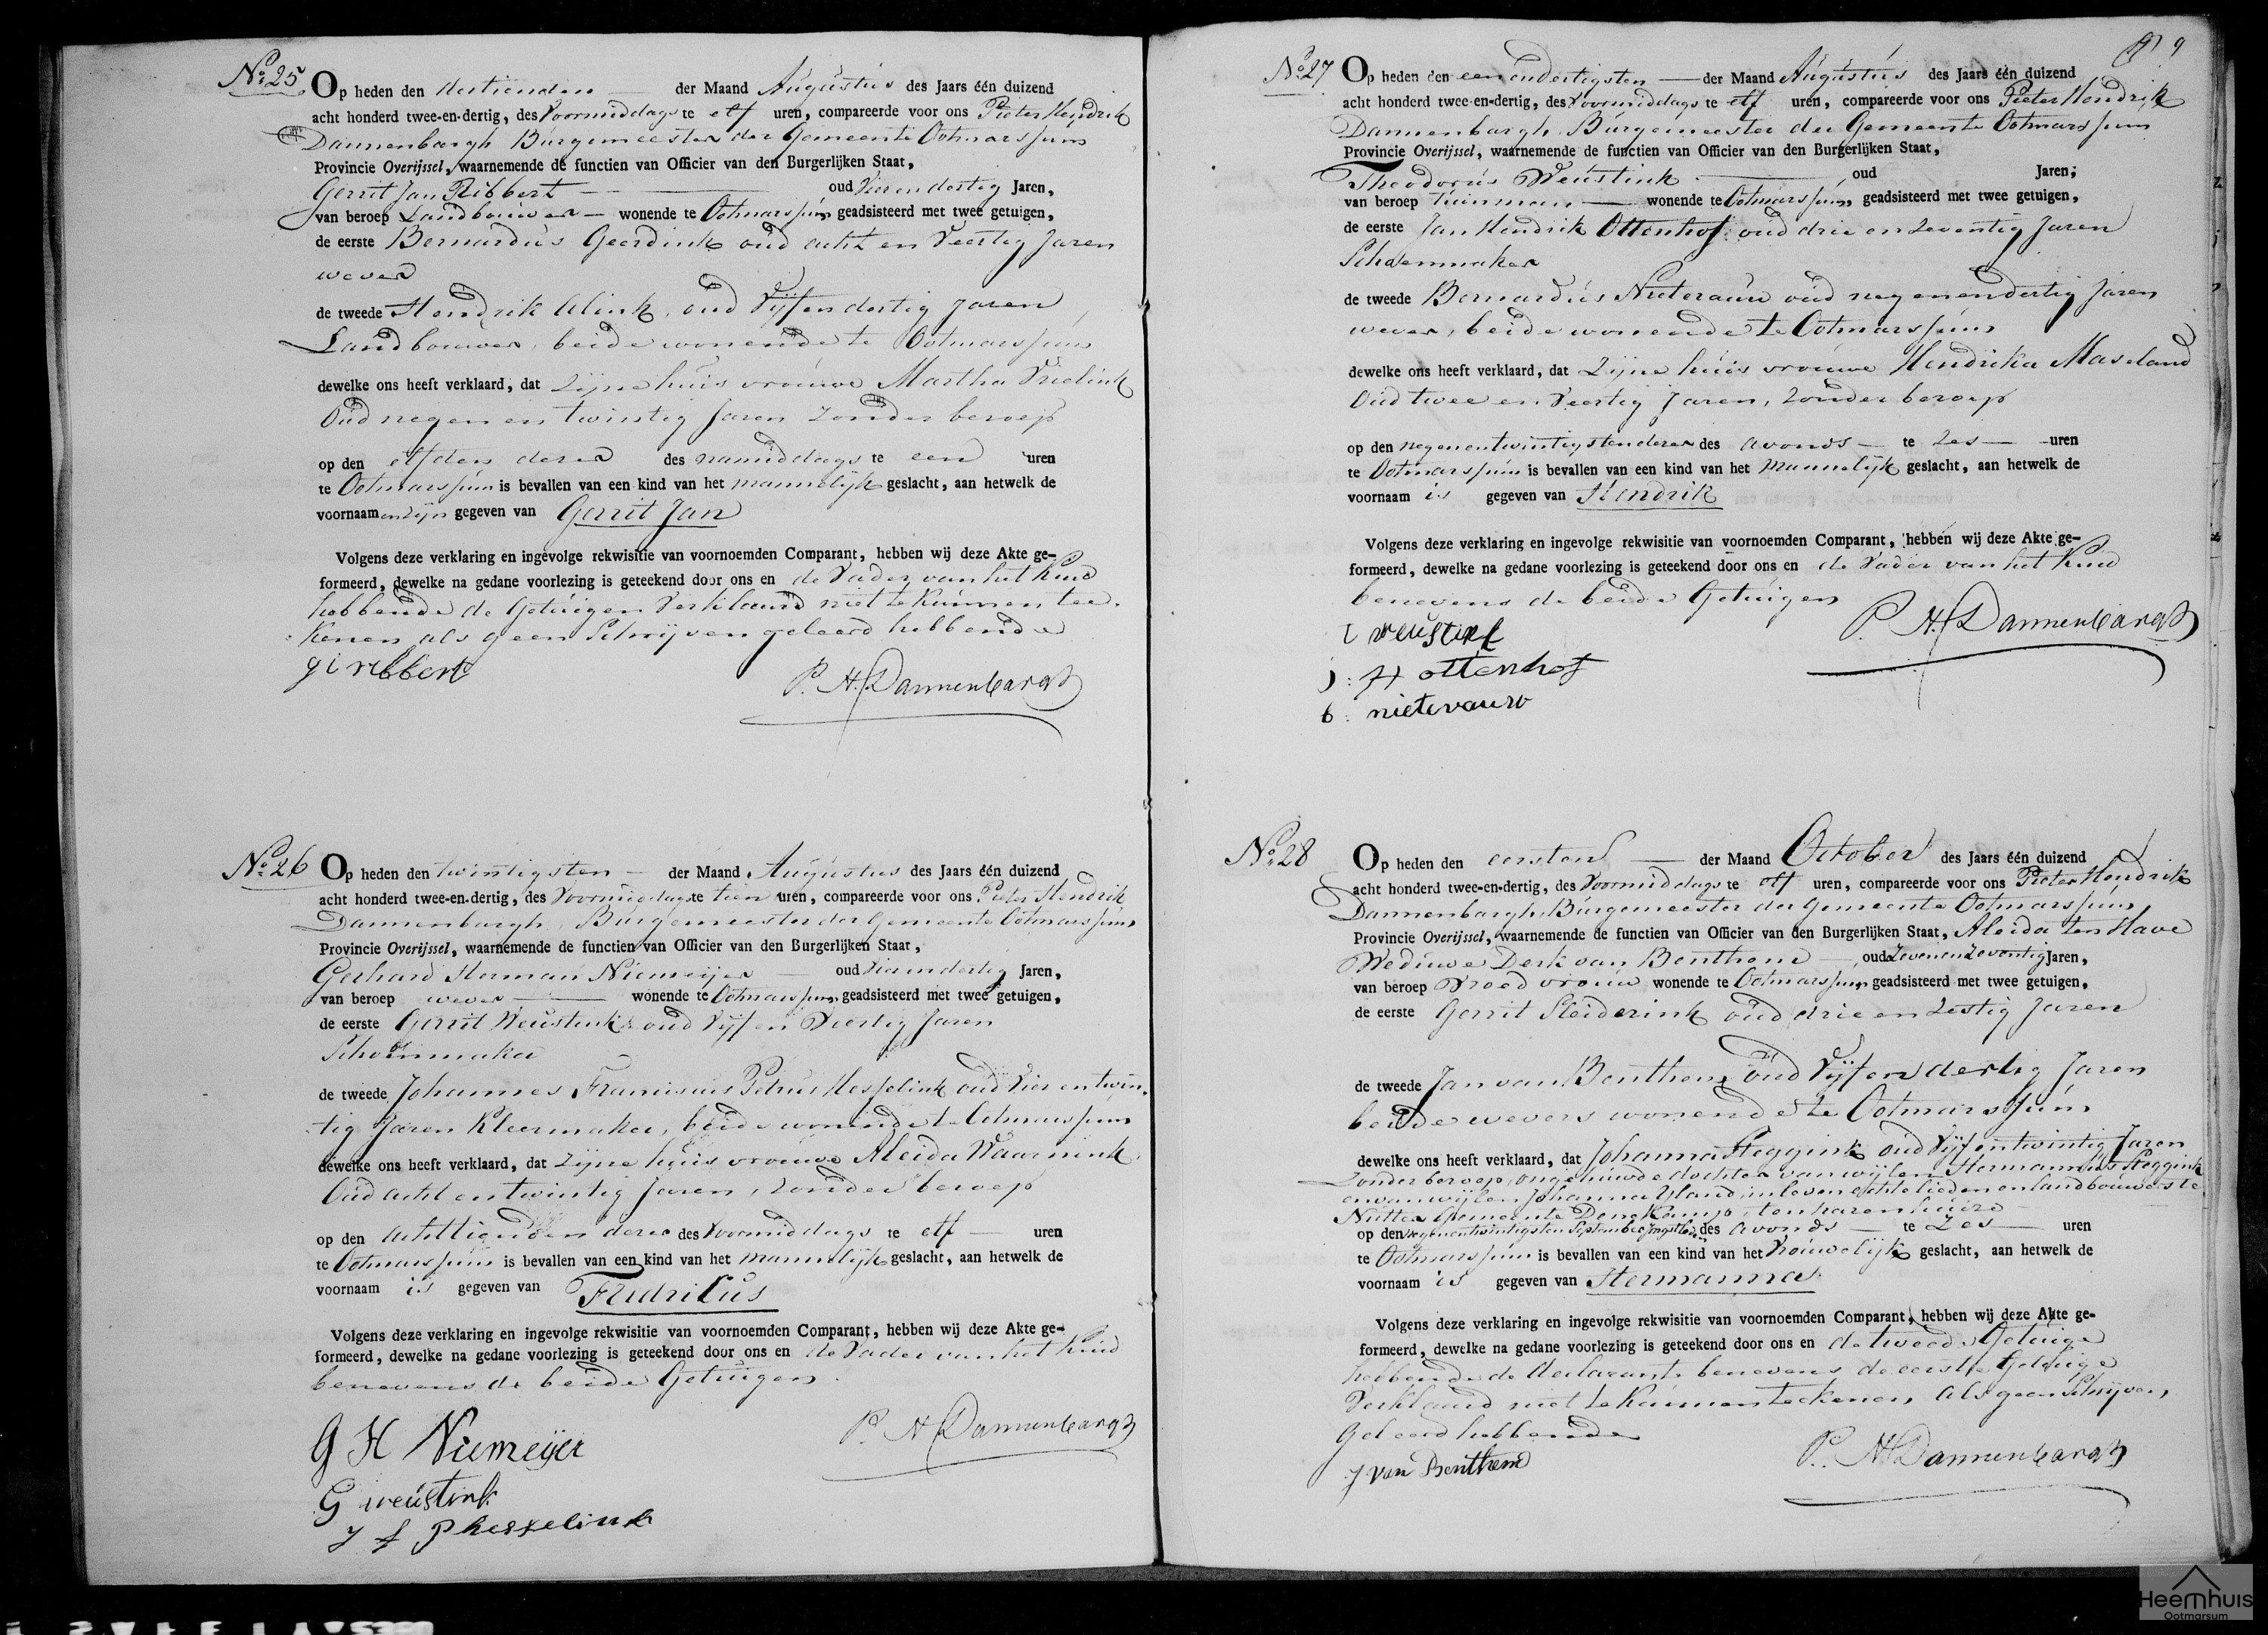 No. 25
Op heden den dertienden — der Maand Augustus des Jaars één duizend
acht honderd twee-en-dertig, des Voormiddags te elf uren, compareerde voor ons Pieter Hendrik
Dannenbargh Burgemeester der Gemeente Ootmarssum
Provincie Overijssel, waarnemende de functien van Officier van den Burgerlijken Staat,
Gerrit Jan Ribbert — oud Vier en dertig Jaren,
van beroep Landbouwer — wonende te Ootmarssum geadsisteerd met twee getuigen,
de eerste Bernardus Geerdink oud acht en Veertig Jaren
wever
de tweede Hendrik Alink, oud Vijf en dertig Jaren
Landbouwer, beide wonende te Ootmarssum
dewelke ons heeft verklaard, dat Zijne huisvrouwe Martha Vrielink
Oud negen en twintig Jaren Zonder beroep
op den elfden dezer des namiddags te een uren
te Ootmarssum is bevallen van een kind van het mannelijk geslacht, aan hetwelk de
voornaamen zijn gegeven van Gerrit Jan
Volgens deze verklaring en ingevolge rekwisitie van voornoemden Comparant, hebben wij deze Akte ge-
formeerd, dewelke na gedane voorlezing is geteekend door ons en de Vader van het Kind
hebbende de Getuigen Verklaard niet te Kunnen tee-
kenen als geen Schrijven geleerd hebbende
g i ribbert
P. H. Dannenbargh
No. 26
Op heden den twintigsten — der Maand Augustus des Jaars één duizend
acht honderd twee-en-dertig, des Voormiddags te tien uren, compareerde voor ons Pieter Hendrik
Dannenbargh, Burgemeester der Gemeente Ootmarssum
Provincie Overijssel, waarnemende de functien van Officier van den Burgerlijken Staat,
Gerhard Herman Niemeijer — oud Vier en dertig Jaren,
van beroep wever — wonende te Ootmarssum geadsisteerd met twee getuigen,
de eerste Gerrit Weustink oud Vijf en Veertig Jaren
Schoenmaker
de tweede Johannes Franciscus Petrus Hesselink oud Vier en twin-
tig Jaren Kleermaker, beide wonende te Ootmarssum
dewelke ons heeft verklaard, dat Zijne huisvrouwe Aleida Waarnink
Oud acht en twintig Jaren, Zonder beroep
op den achttienden dezer des Voormiddags te elf — uren
te Ootmarssum is bevallen van een kind van het mannelijk geslacht, aan hetwelk de
voornaam is gegeven van Fredricus
Volgens deze verklaring en ingevolge rekwisitie van voornoemden Comparant, hebben wij deze Akte ge-
formeerd, dewelke na gedane voorlezing is geteekend door ons en de Vader van het Kind
benevens de beide Getuigen.
P. H. Dannenbargh
G H Niemeijer
G weustink
J f P hesselink
9
No. 27
Op heden den een en dertigsten — der Maand Augustus des Jaars één duizend
acht honderd twee-en-dertig, des Voormiddags te elf uren, compareerde voor ons Pieter Hendrik
Dannenbargh Burgemeester der Gemeente Ootmarssum
Provincie Overijssel, waarnemende de functien van Officier van den Burgerlijken Staat,
Theodorus Weustink — oud Jaren,
van beroep tuinman — wonende te Ootmarssum, geadsisteerd met twee getuigen,
de eerste Jan Hendrik Ottenhof oud drie en Zeventig Jaren
Schoenmaker
de tweede Bernardus Nieterauw oud negen en dertig Jaren
wever, beide wonende te Ootmarssum
dewelke ons heeft verklaard, dat Zijne huisvrouwe Hendrika Maseland
Oud twee en Veertig Jaren, Zonder beroep
op den negen en twintigsten dezer des avonds — te Zes — uren
te Ootmarssum is bevallen van een kind van het Mannelijk geslacht, aan hetwelk de
voornaam is gegeven van Hendrik
Volgens deze verklaring en ingevolge rekwisitie van voornoemden Comparant, hebben wij deze Akte ge-
formeerd, dewelke na gedane voorlezing is geteekend door ons en de Vader van het Kind
benevens de beide Getuigen
P. H. Dannenbargh
t weustink
j: H ottenhof
b: nieterauw
No. 28
Op heden den eersten — der Maand October des Jaars één duizend
acht honderd twee-en-dertig, des Voormiddags te elf uren, compareerde voor ons Pieter Hendrik
Dannenbargh Burgemeester der Gemeente Ootmarssum
Provincie Overijssel, waarnemende de functien van Officier van den Burgerlijken Staat, Aleida ten Have
Weduwe Derk van Benthem oud Zeven en Zeventig Jaren,
van beroep Vroedvrouw wonende te Ootmarssum geadsisteerd met twee getuigen,
de eerste Gerrit Sleiderink oud drie en Zestig Jaren
de tweede Jan van Benthem oud Vijf en dertig Jaren
beide wevers wonende te Ootmarssum
dewelke ons heeft verklaard, dat Johanna Steggink oud Vijf en twintig Jaren
Zonder beroep, ongehuwde dochter van wijlen Hermannus Steggink
en van wijlen Johanna Yland in leven echtelieden en landbouwers te
Nutter Gemeente Denekamp, ten haren huize
op den negen en twintigsten September jongstleden des avonds — te Zes — uren
te Ootmarssum is bevallen van een kind van het Vrouwelijk geslacht, aan hetwelk de
voornaam is gegeven van Hermanna
Volgens deze verklaring en ingevolge rekwisitie van voornoemden Comparant, hebben wij deze Akte ge-
formeerd, dewelke na gedane voorlezing is geteekend door ons en de tweede Getuige
hebbende de declarante benevens de eerste Getuige
Verklaard niet te Kunnen teekenen, als geen Schrijven
Geleerd hebbende
J van Benthem
P. H. Dannenbargh
Heemhuis
Ootmarsum